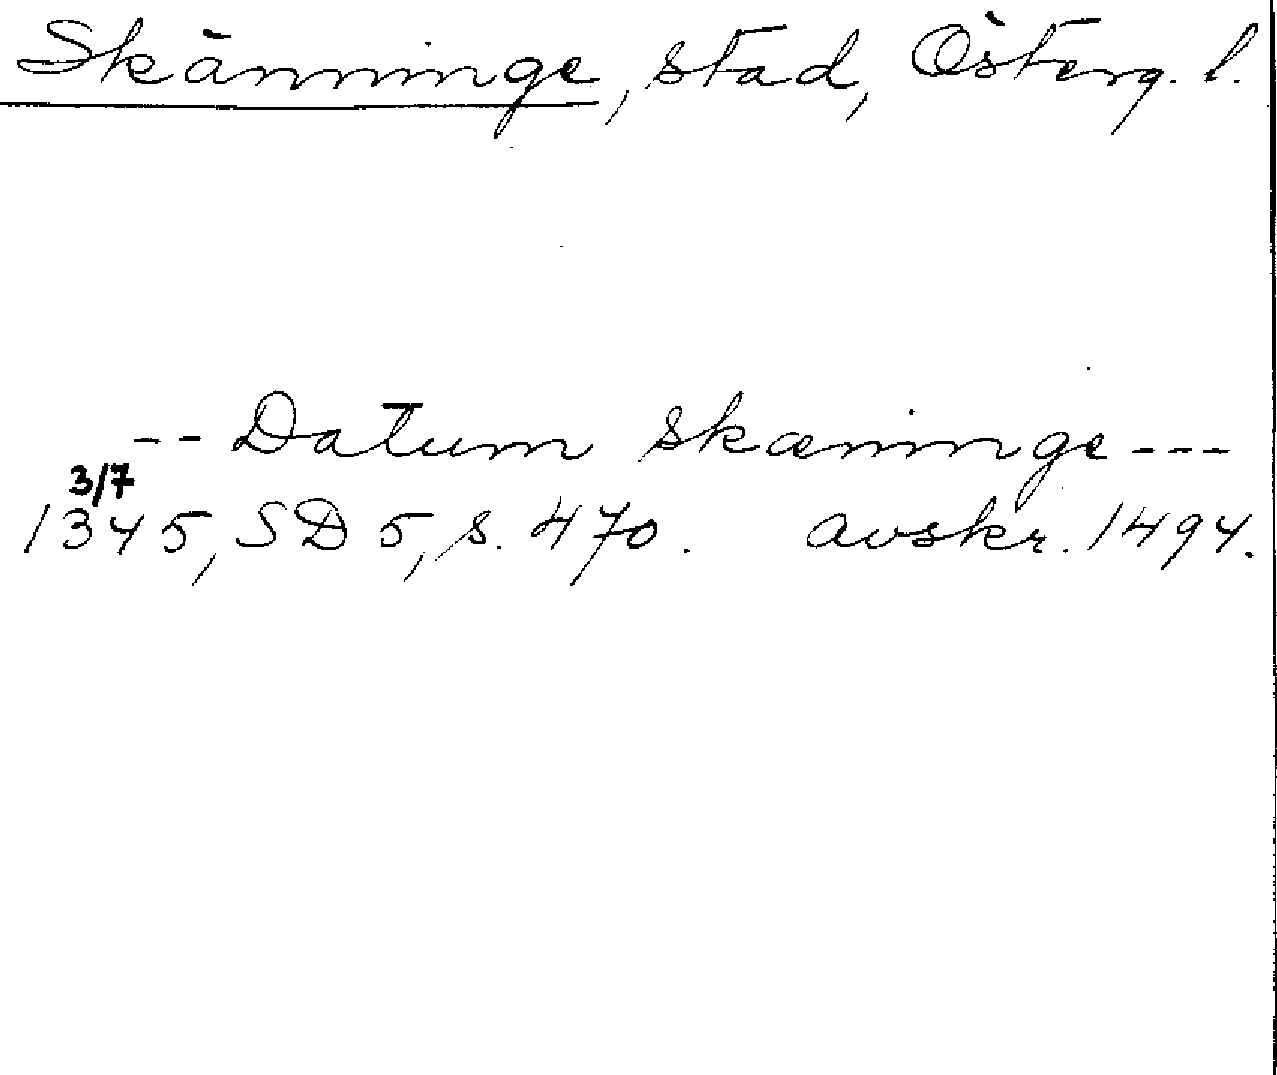 Skänninge, stad, Österg. l.
-- Datum skæninge ---
3/7
1345, SD 5, s. 470. avskr. 1494.